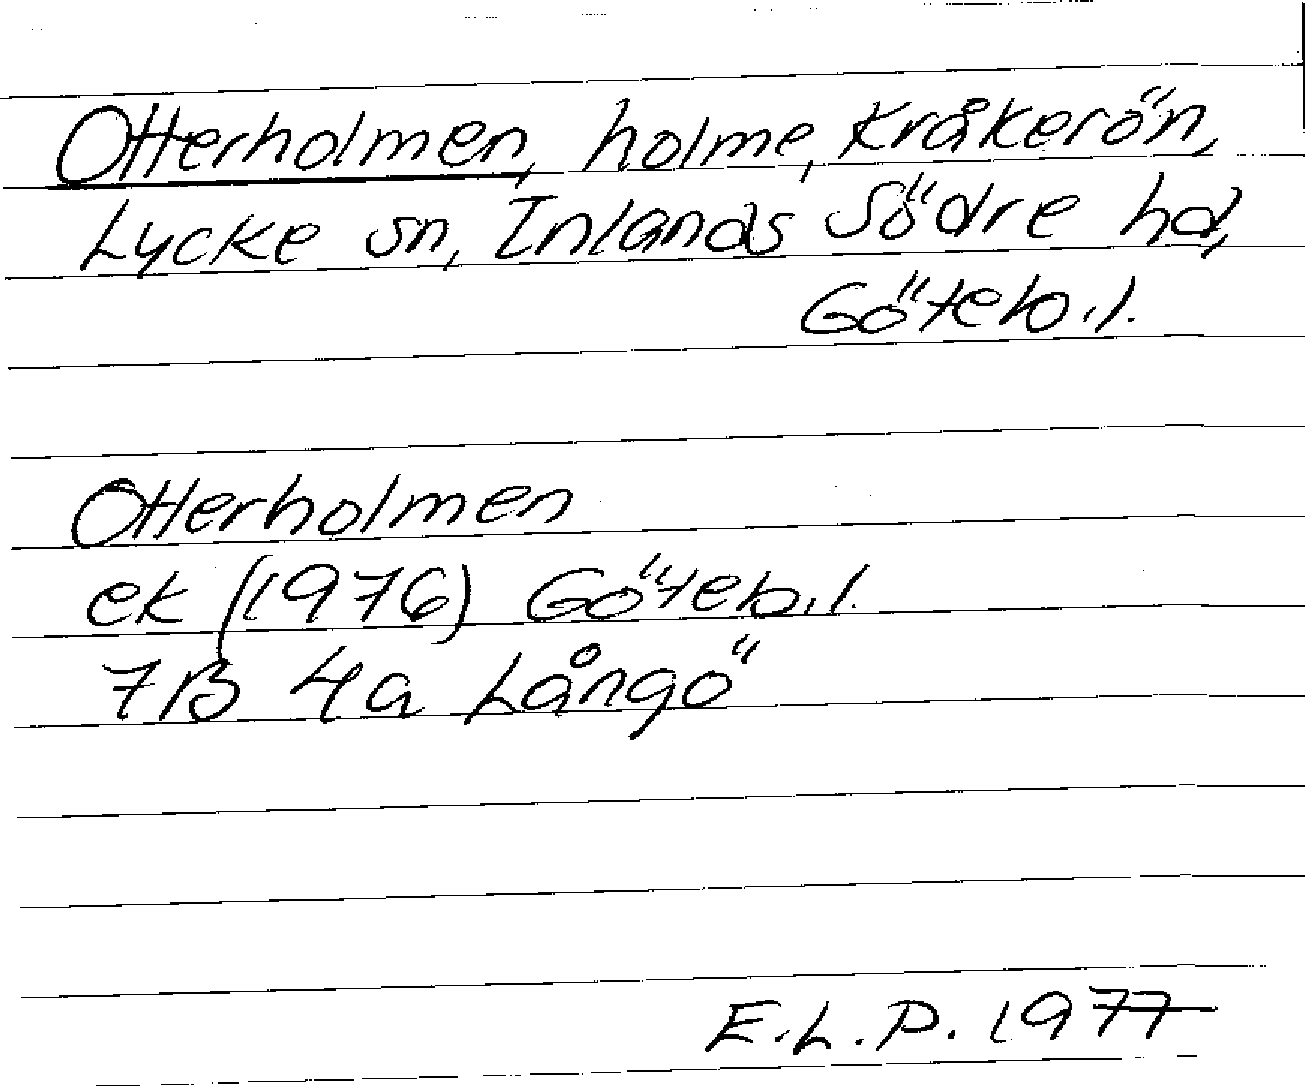 Otterholmen, holme, Kråkerön,
Lycke sn, Inlands Södre hd,
Göteb.l.
Otterholmen
ek (1976) Göteb.l.
7B 4a Långö
E.L.P. 1977